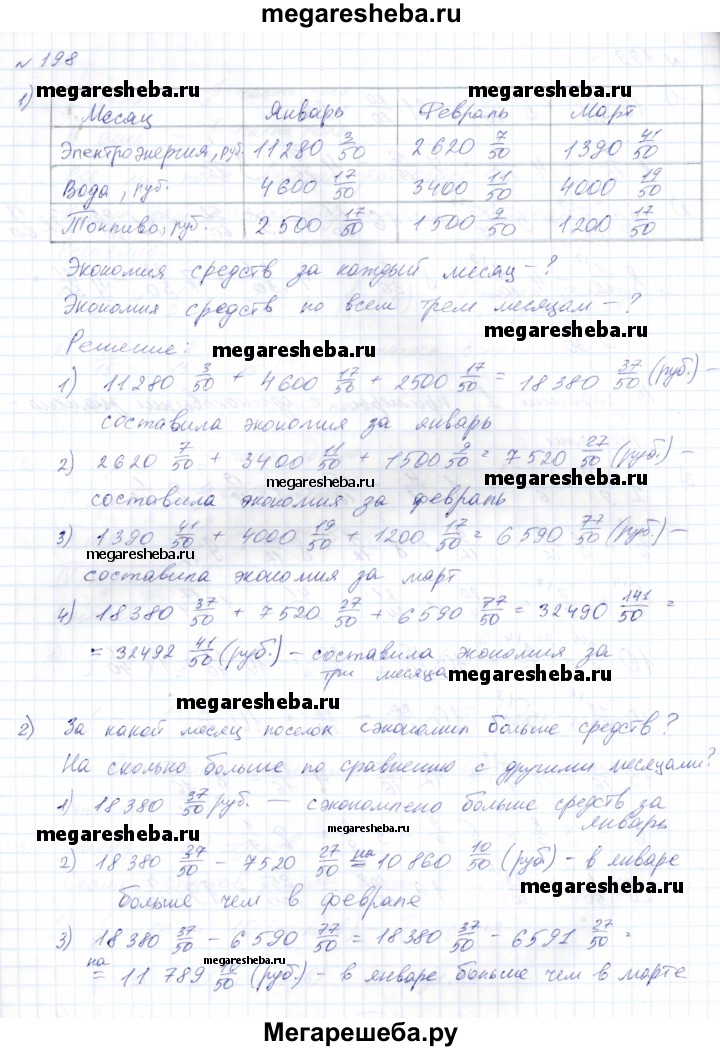 megaresheba.ru
№ 198
megaresheba.ru megaresheba.ru
1) Месяц Январь Февраль Март
Электроэнергия, руб. 11280 3/50 2620 7/50 1390 41/50
Вода, руб. 4600 17/50 3400 11/50 4000 19/50
Топливо, руб. 2500 17/50 1500 9/50 1200 17/50
Экономия средств за каждый месяц - ?
Экономия средств по всем трем месяцам - ?
megaresheba.ru
Решение:
megaresheba.ru
1) 11280 3/50 + 4600 17/50 + 2500 17/50 = 18380 37/50 (руб.) -
составила экономия за январь
2) 2620 7/50 + 3400 11/50 + 1500 9/50 = 7520 27/50 (руб.) -
megaresheba.ru
составила экономия за февраль
3) 1390 41/50 + 4000 19/50 + 1200 17/50 = 6590 77/50 (руб.) -
megaresheba.ru
составила экономия за март
megaresheba.ru
4) 18380 37/50 + 7520 27/50 + 6590 77/50 = 32490 141/50 =
= 32492 41/50 (руб.) - составила экономия за
три месяца
megaresheba.ru
megaresheba.ru
2) За какой месяц поселок сэкономил больше средств?
На сколько больше по сравнению с другими месяцами?
1) 18380 37/50 руб. — сэкономлено больше средств за
январь
megaresheba.ru
megaresheba.ru
2) 18380 37/50 - 7520 27/50 = на 10860 10/50 (руб) - в январе
megaresheba.ru
больше чем в феврале
3) 18380 37/50 - 6590 77/50 = 18380 37/50 - 6591 27/50 =
megaresheba.ru
= на 11789 10/50 (руб.) - в январе больше чем в марте
Мегарешеба.ру